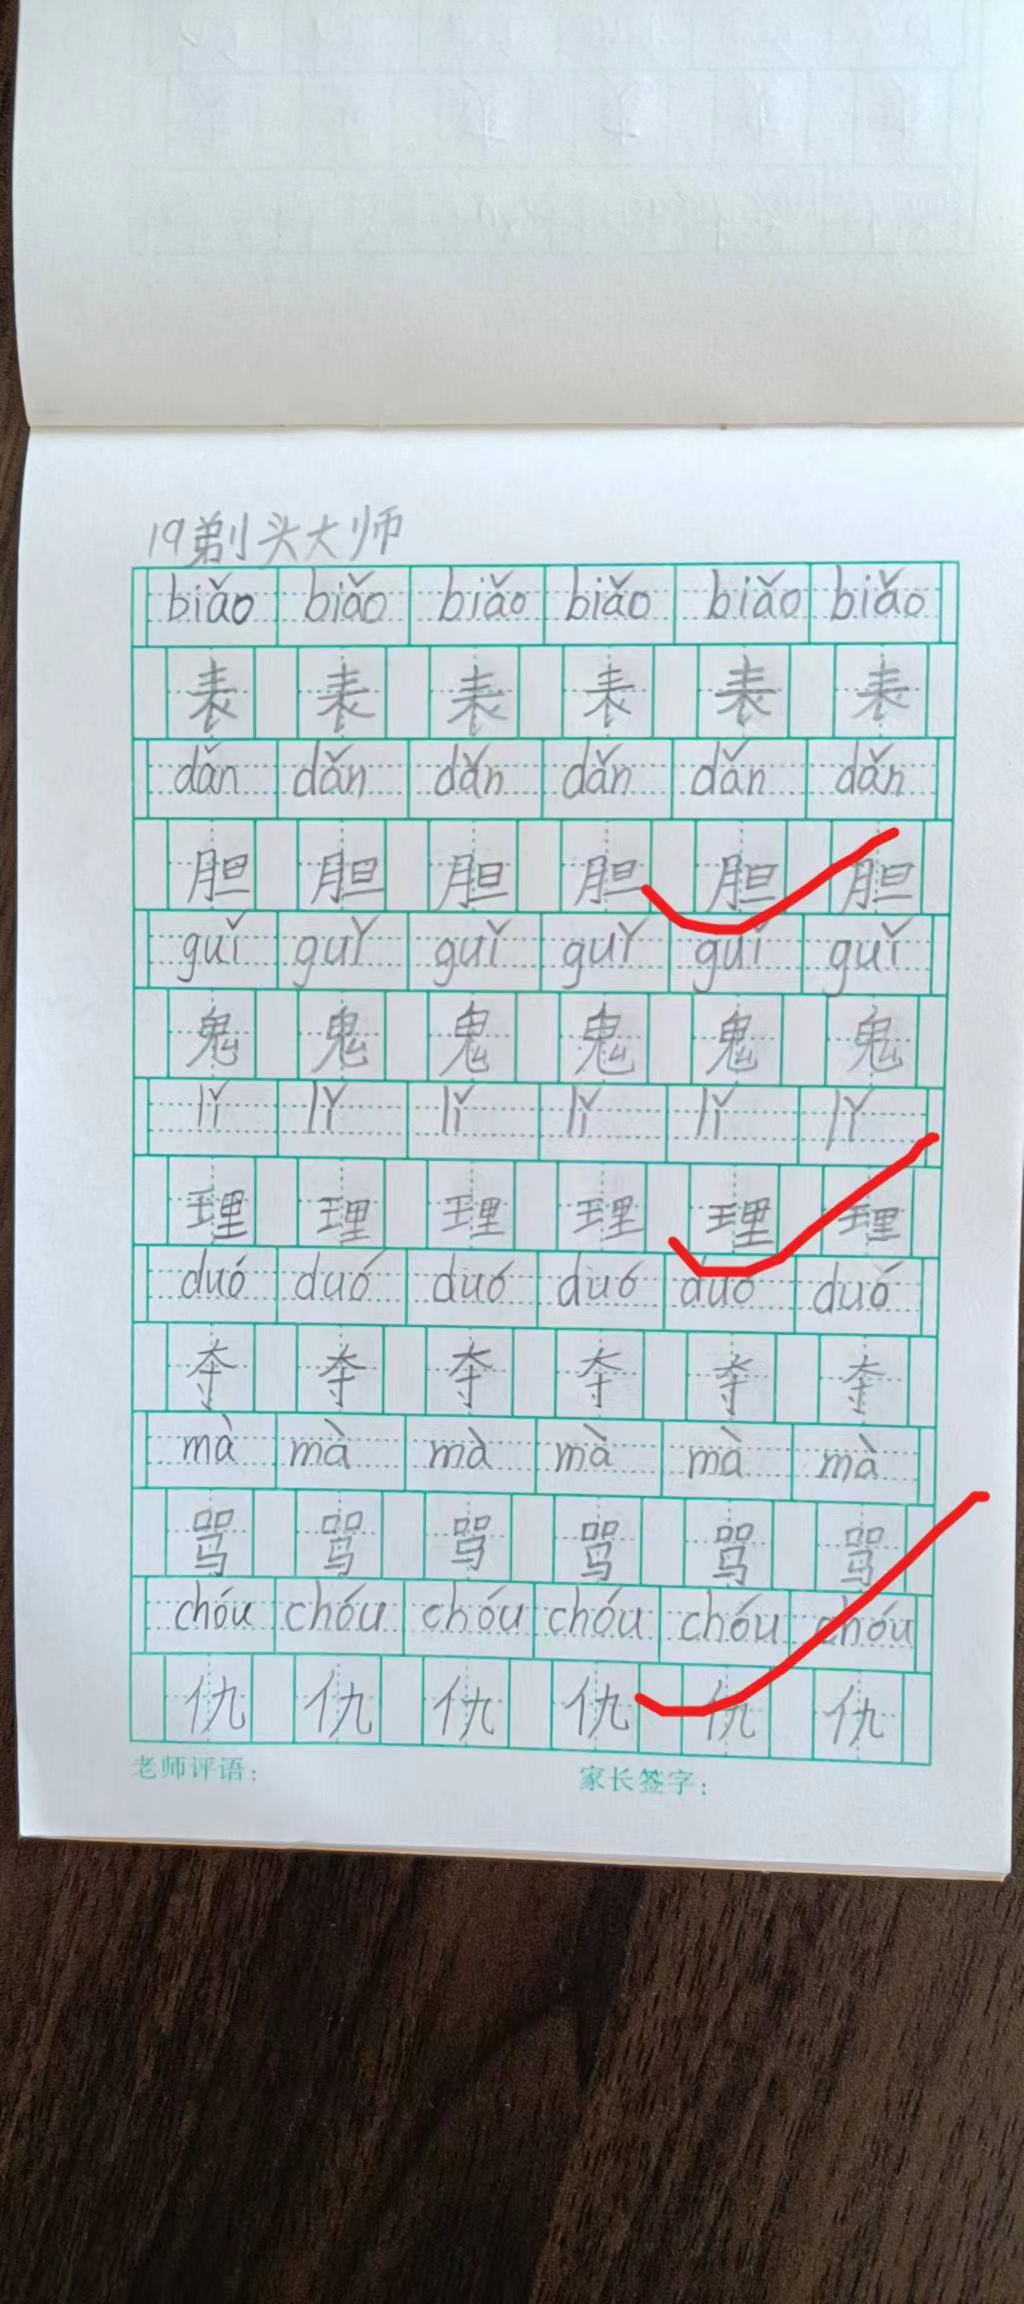 19剃头大师
biǎo biǎo biǎo biǎo biǎo biǎo
表 表 表 表 表 表
dǎn dǎn dǎn dǎn dǎn dǎn
胆 胆 胆 胆 胆 胆
guǐ guǐ guǐ guǐ guǐ guǐ
鬼 鬼 鬼 鬼 鬼 鬼
lǐ lǐ lǐ lǐ lǐ lǐ
理 理 理 理 理 理
duó duó duó duó duó duó
夺 夺 夺 夺 夺 夺
mà mà mà mà mà mà
骂 骂 骂 骂 骂 骂
chóu chóu chóu chóu chóu chóu
仇 仇 仇 仇 仇 仇
老师评语: 家长签字: